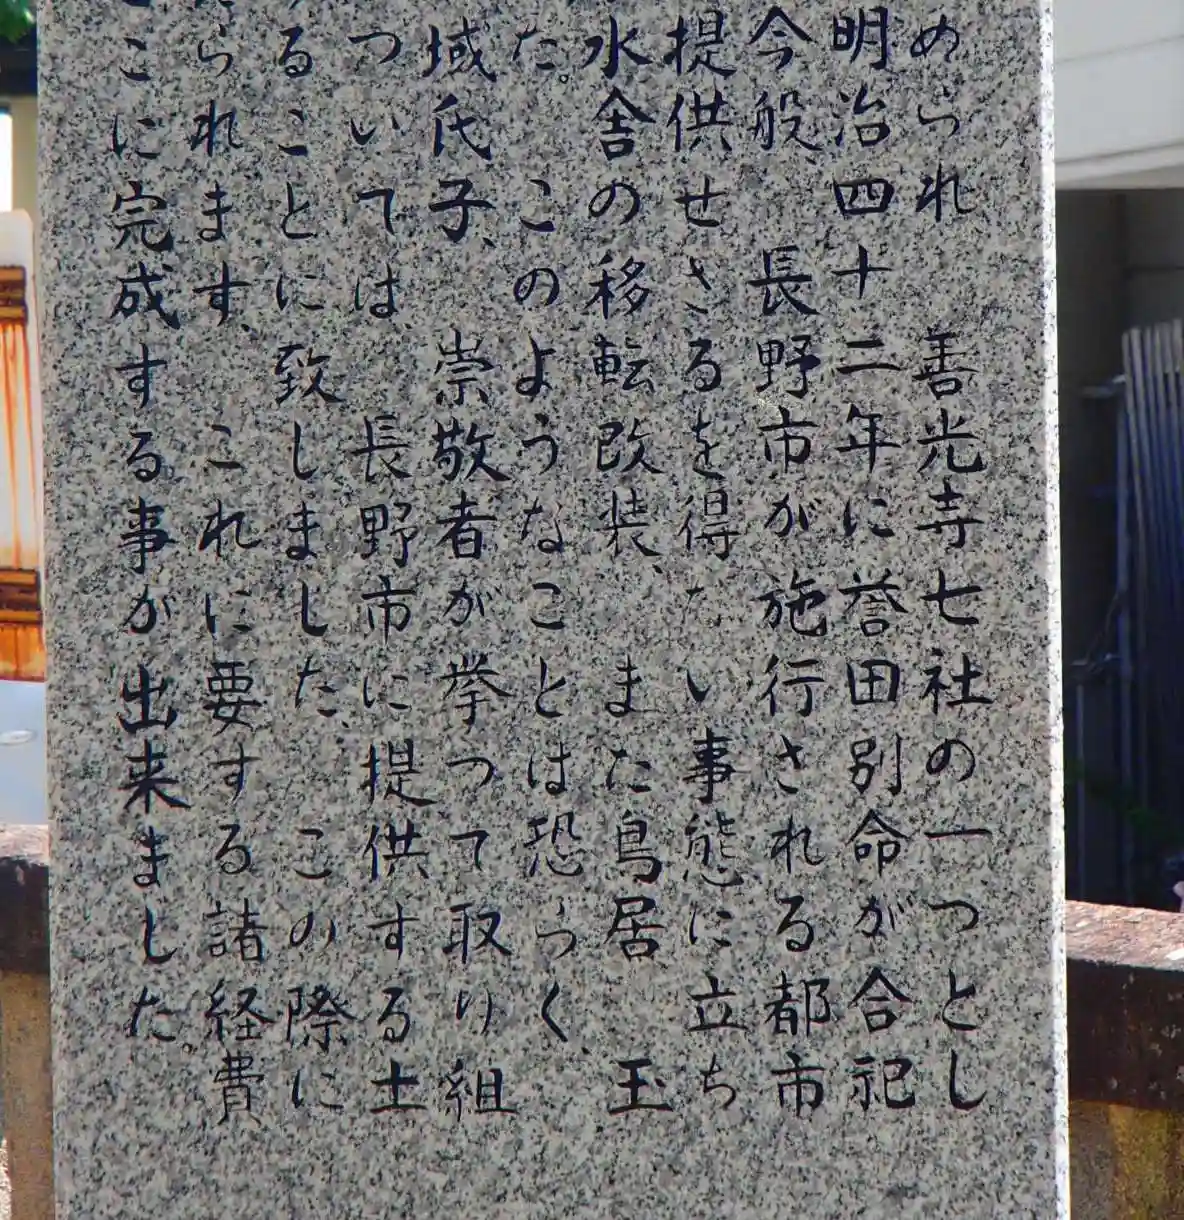 められ 善光寺七社の一つとし
明治四十二年に誉田別命が合祀
今般、長野市が施行される都市
提供せざるを得ない事態に立ち
水舎の移転改装、また鳥居 玉
た。このようなことは恐らく、
域氏子、崇敬者が挙つて取り組
ついては、長野市に提供する土
ることに致しました、この際に
られます、これに要する諸経費
こに完成する事が出来ました。